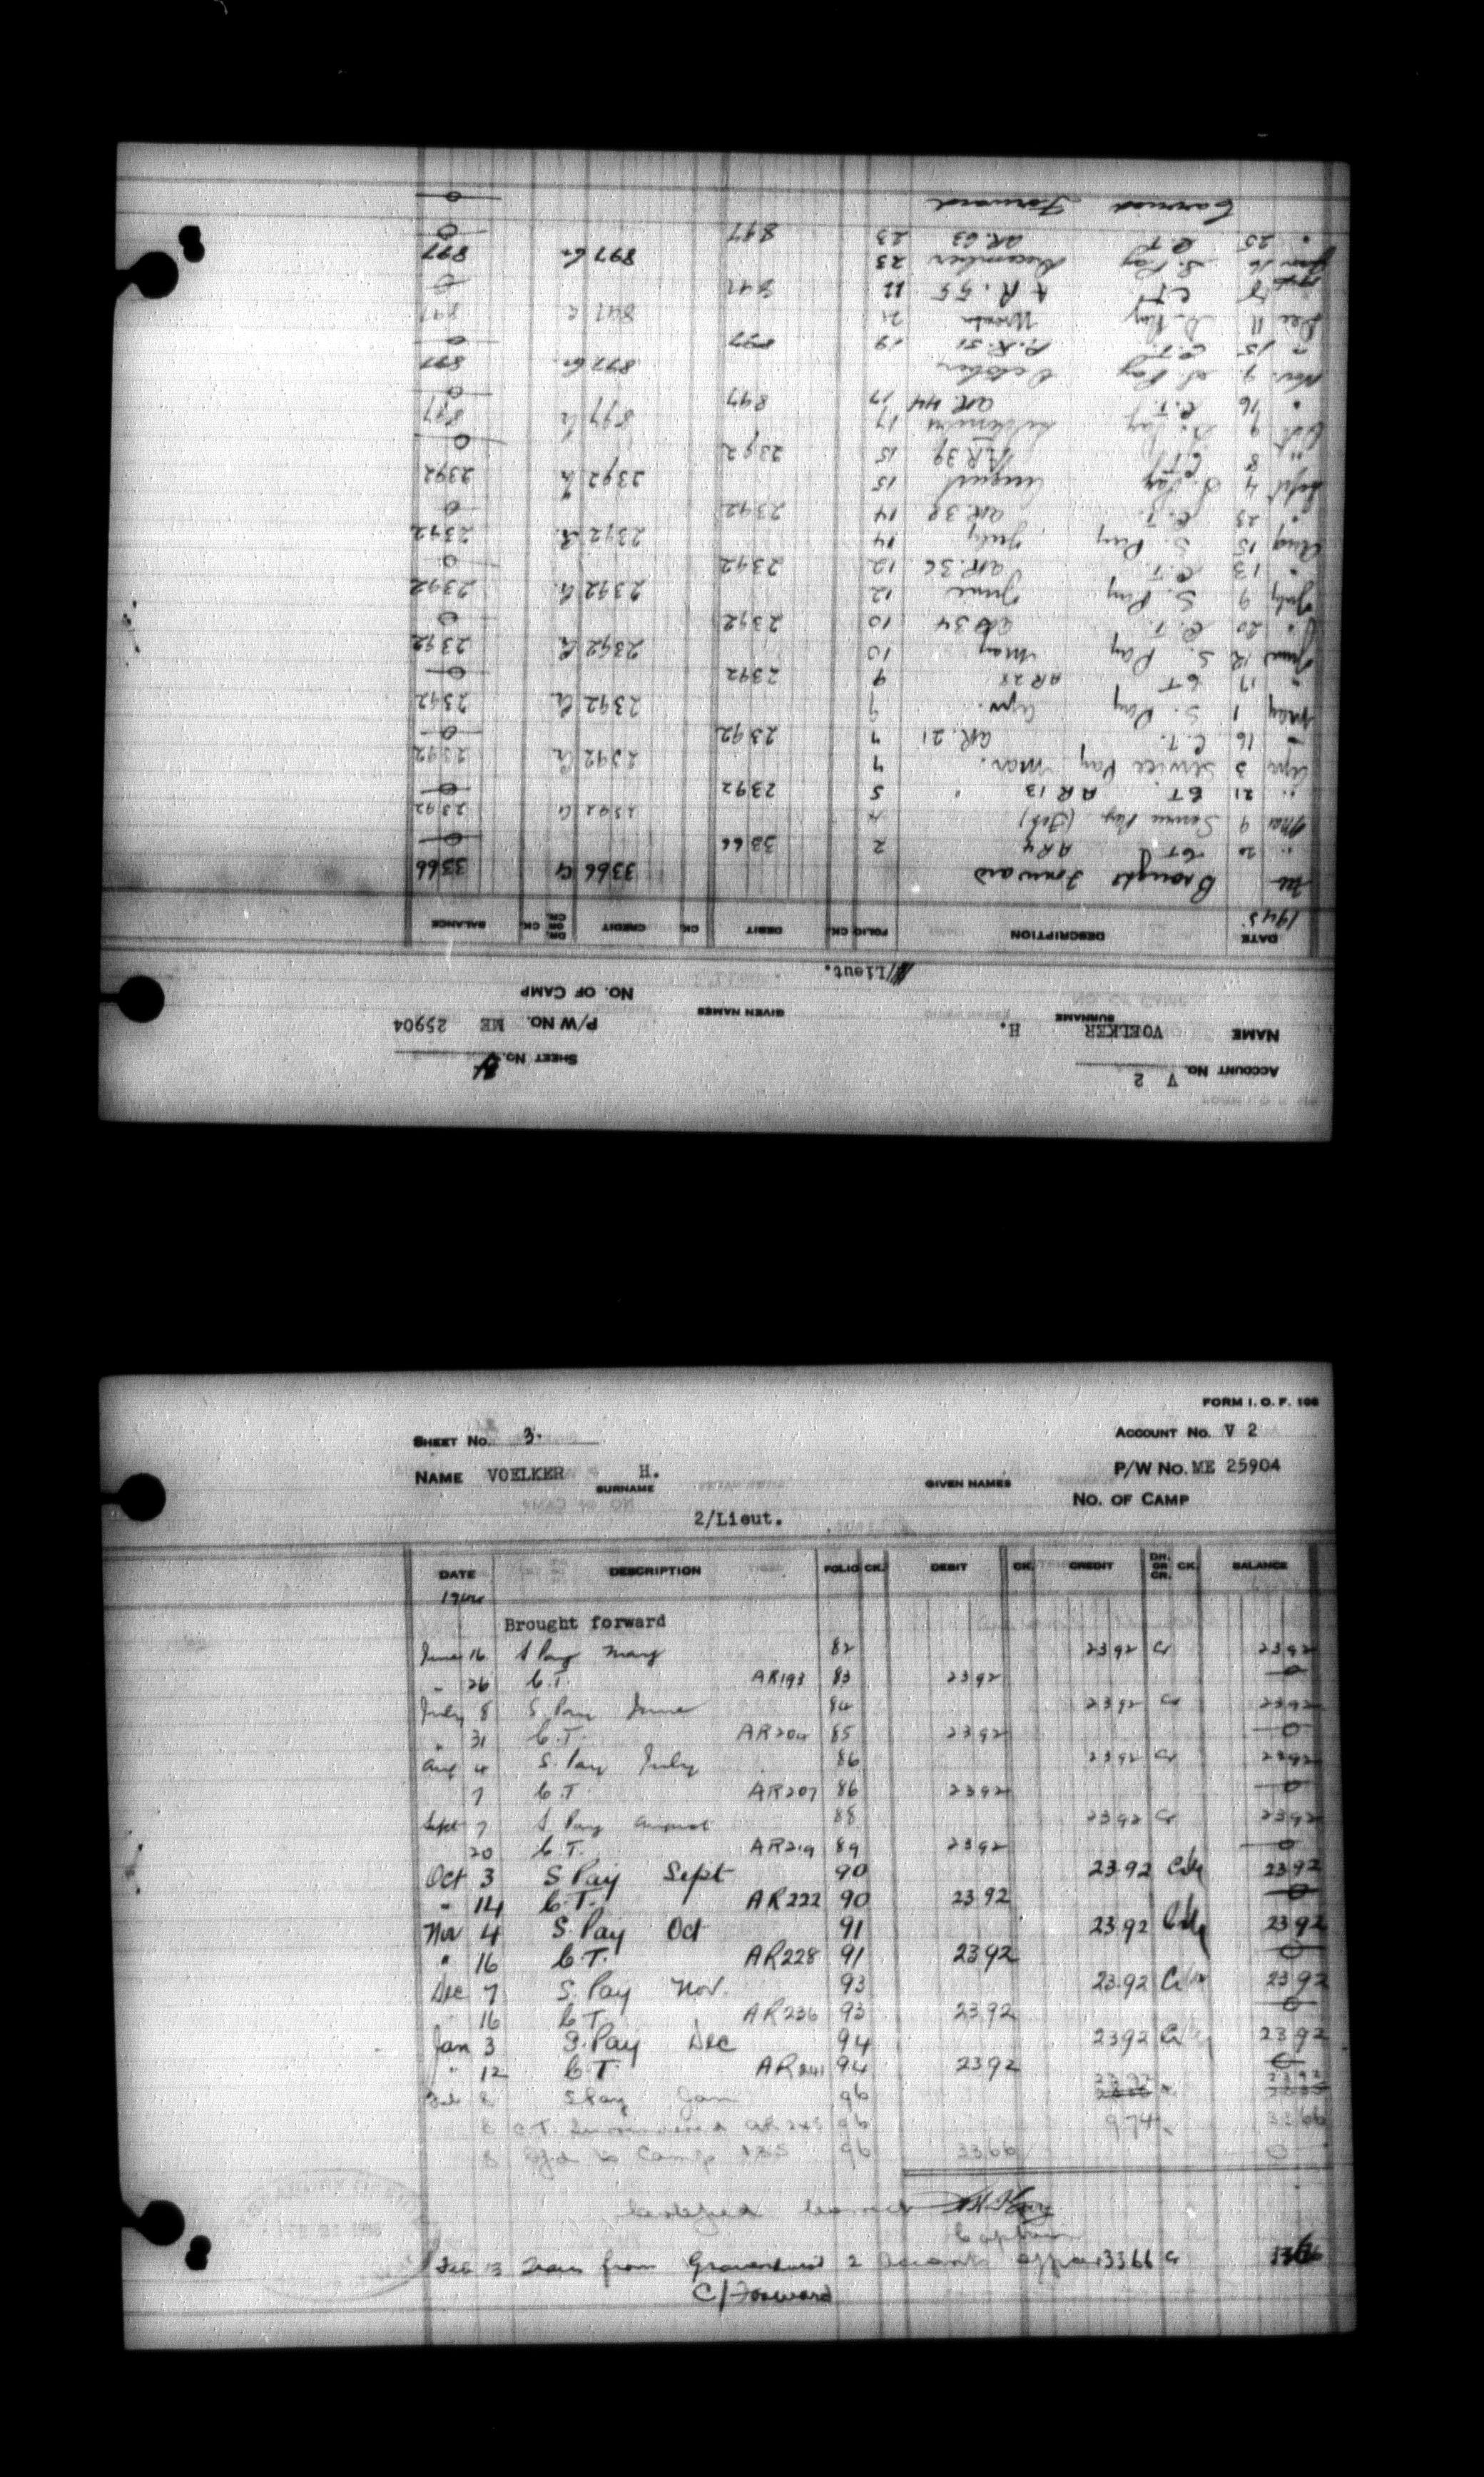 SHEET No. 4
ACCOUNT No. V 2
NAME VOELKER H.
SURNAME
GIVEN NAMES
P/W No. ME 25904
NO. OF CAMP
/Lieut.
DATE DESCRIPTION FOLIO CK. DEBIT CK. CREDIT DR. OR CR. CK. BALANCE
1945
Brought Forward 3366 Cr 3366
" 20 CT AR4 2 3366 0
Mar 9 Service Pay (Feb) 4 2392 Cr 2392
" 21 CT AR13 5 2392 0
Apr 3 Service Pay Mar. 7 2392 Cr 2392
" 16 C.T. AR.21 7 2392 0
May 1 S. Pay Apr. 9 2392 Cr 2392
" 17 CT AR28 9 2392 0
June 12 S. Pay May 10 2392 Cr 2392
" 20 C.T. AR34 10 2392 0
July 9 S. Pay June 12 2392 Cr 2392
" 13 C.T. AR.36 12 2392 0
Aug 15 S. Pay July 14 2392 Cr 2392
" 23 C.T. AR.38 14 2392 0
Sept 4 S. Pay August 15 2392 Cr 2392
" 8 CT AR39 15 2392 0
Oct 9 S. Pay September 17 897 Cr 897
" 16 C.T. AR.44 17 897 0
Nov 9 S Pay October 897 Cr 897
" 15 C.T. A.R.51 19 897 0
Dec 11 S. Pay 21 897 Cr 897
CT A R.55 22 897 0
Jan 16 S. Pay December 23 897 Cr 897
" 25 C.T. AR.63 23 897 0
Carried Forward 0
FORM I. O. F. 106
SHEET No. 3.
ACCOUNT No. V 2
NAME VOELKER H.
P/W No. ME 25904
SURNAME
GIVEN NAMES
NO. OF CAMP
2/Lieut.
DATE DESCRIPTION FOLIO CK. DEBIT CK. CREDIT DR. OR CR. CK. BALANCE
1944
Brought forward
June 16 S Pay May 82 2392 Cr 2392
" 26 C.T. AR193 83 2392 0
July 8 S. Pay June 84 2392 Cr 2392
" 31 C.T. AR204 85 2392 0
Aug 4 S. Pay July 86 2392 Cr 2392
7 C.T. AR207 86 2392 0
Sept 7 S Pay August 88 2392 Cr 2392
20 C.T. AR219 89 2392 0
Oct 3 S Pay Sept 90 2392 Cr 2392
" 14 C.T. AR222 90 2392 0
Nov 4 S. Pay Oct 91 2392 Cr 2392
" 16 C.T. AR228 91 2392 0
Dec 7 S. Pay Nov. 93 2392 Cr 2392
16 C.T. AR236 93 2392 0
Jan 3 S. Pay Dec 94 2392 Cr 2392
" 12 C.T. AR241 94 2392 0
Feb 8 S Pay Jan 96 2392 2392
8 C.T. AR245 96 974 3366
8 Tfd to Camp 135 96 3366 0
Certified Correct
Captain
Feb 13 Trans from Gravenhurst 2 3366 Cr 3366
C/Forward